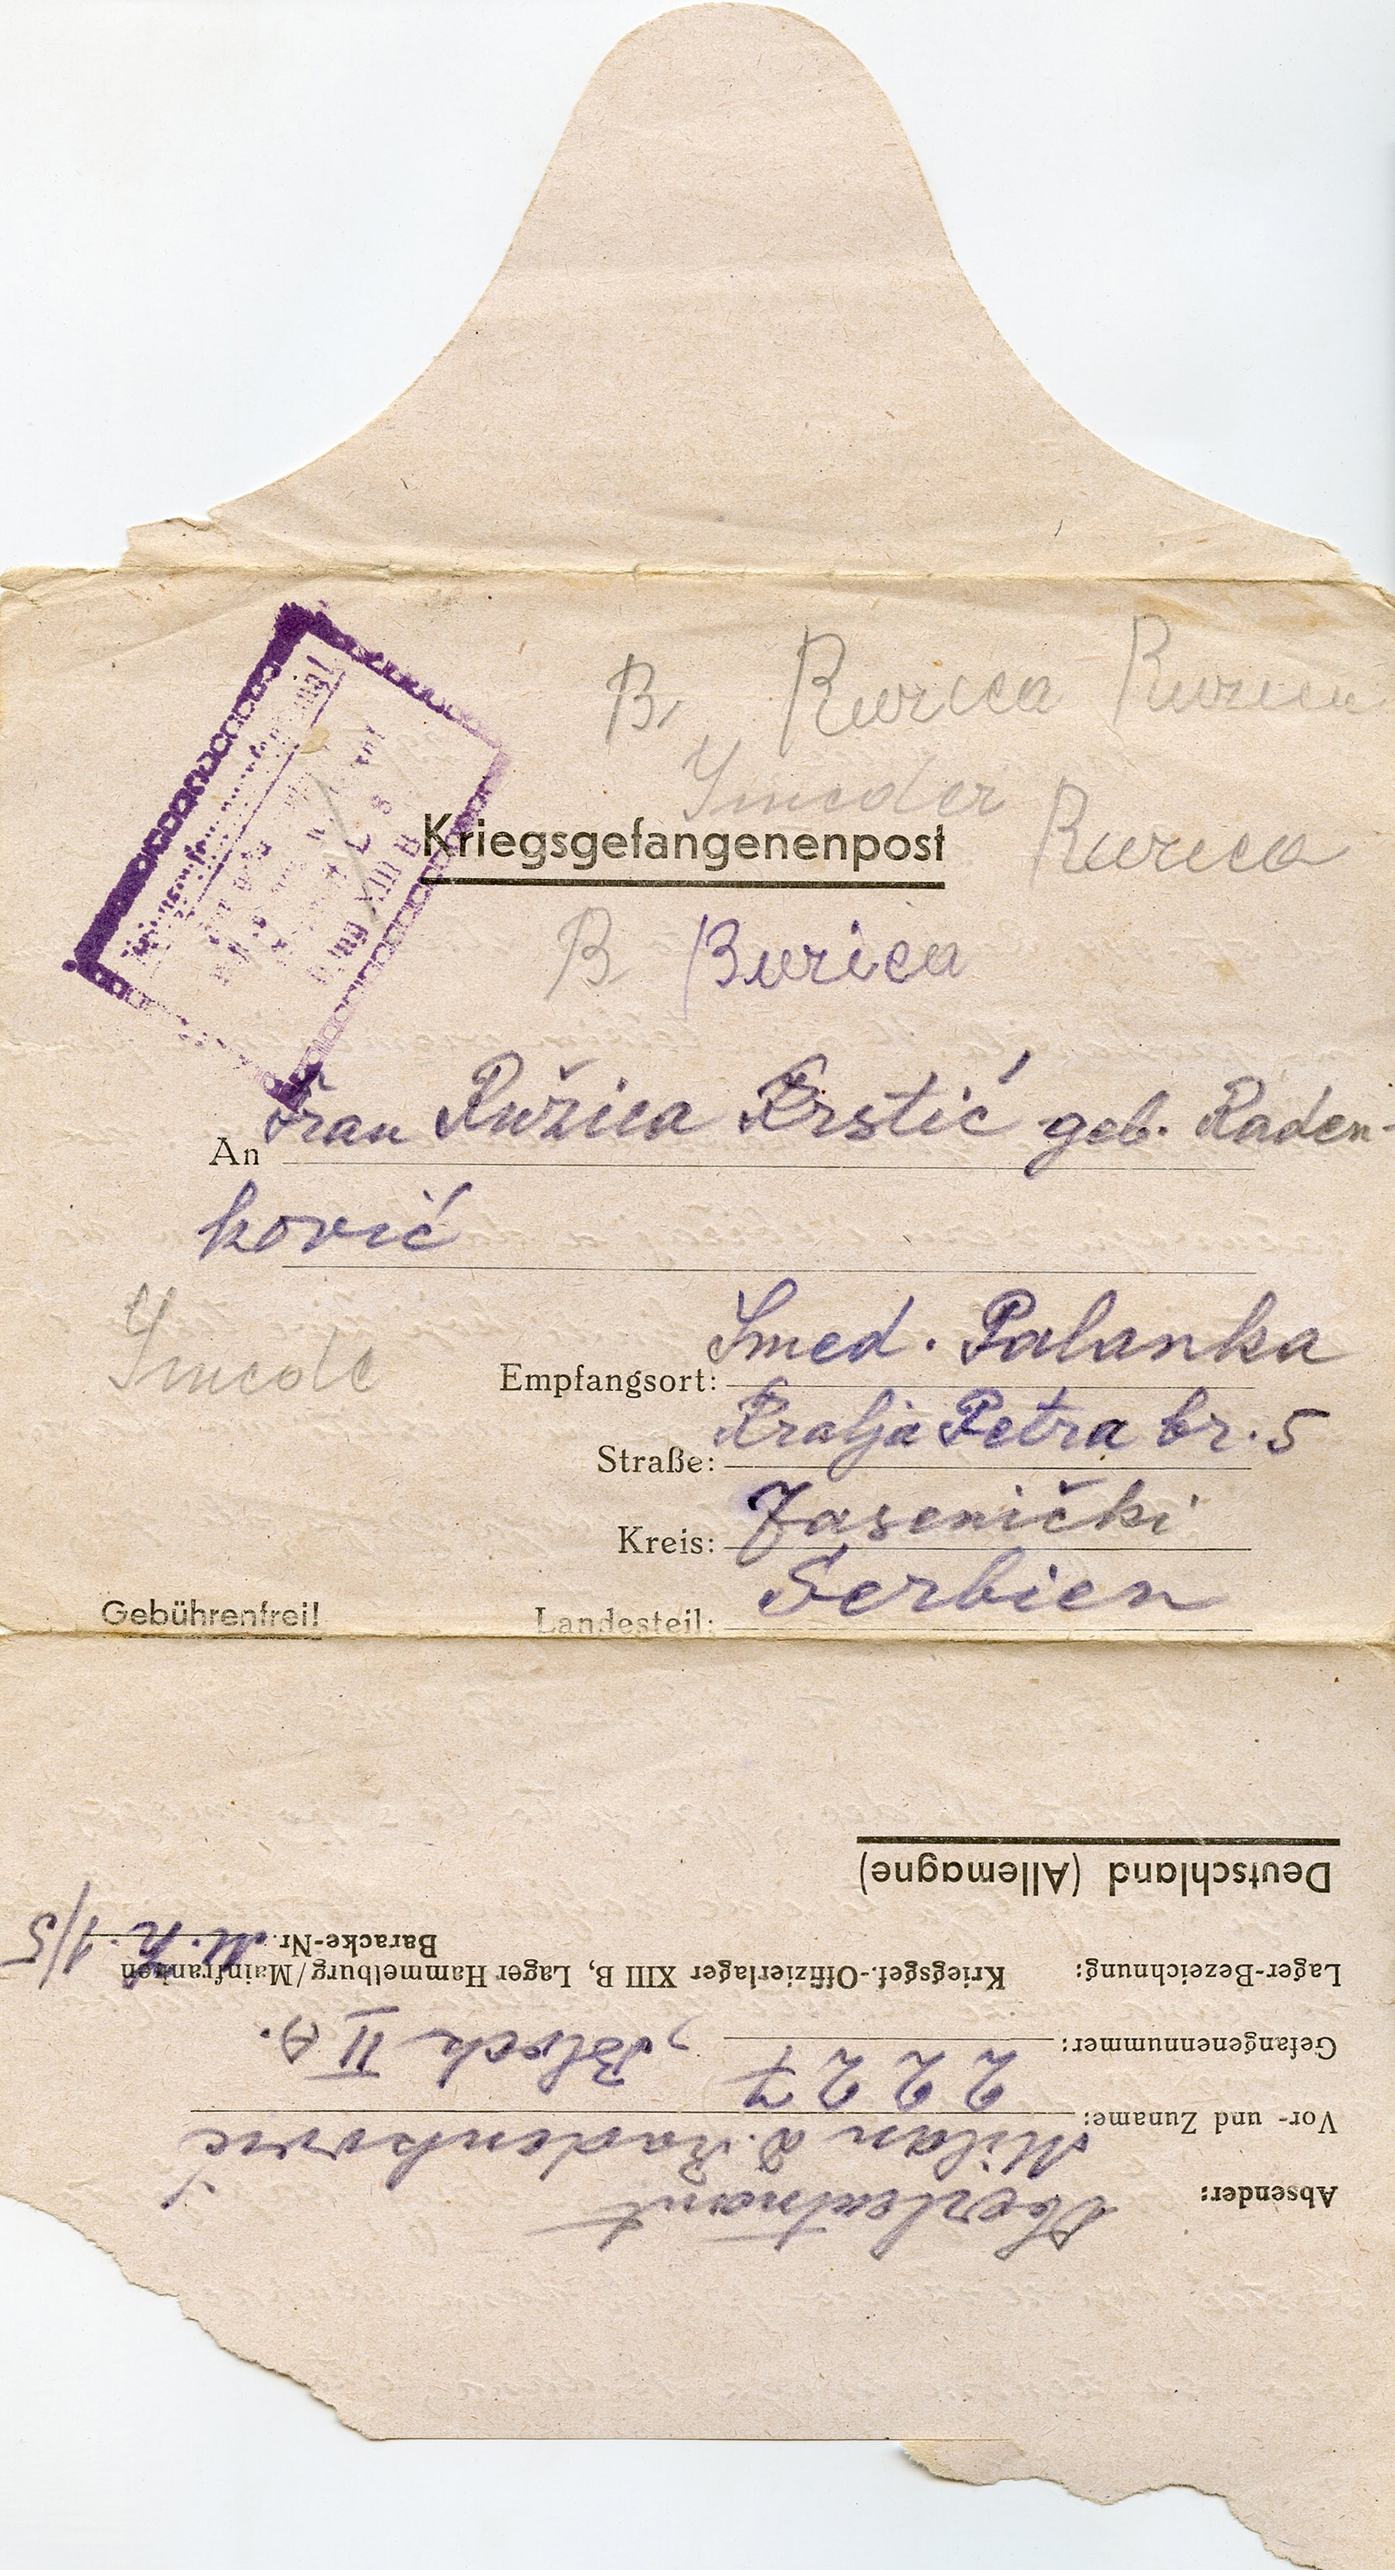 B, Rurica Rurica
Smeder
Kriegsgefangenenpost
Rurica
B Burica
An Frau Ružica Krstić geb. Raden-
ković
Smede
Empfangsort: Smed. Palanka
Straße: Kralja Petra br. 5
Kreis: Jasenički
Gebührenfrei!
Landesteil: Serbien
XIII B
Absender: Oberleutnant
Vor- und Zuname: Milan D. Radenković
Gefangenennummer: 2227, Block II A.
Lager-Bezeichnung: Kriegsgef.-Offizierlager XIII B, Lager Hammelburg/Mainfranken
Baracke-Nr. 1/5
Deutschland (Allemagne)